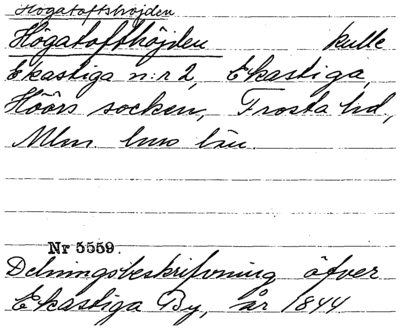 Högatoftshöjden
Högatofthöjden kulle
Ekastiga n:r 2, Ekastiga,
Höörs socken, Frosta hd,
Mlm hus län.
Nr 5559.
Delningsbeskrifvning öfver
Ekastiga By, år 1844